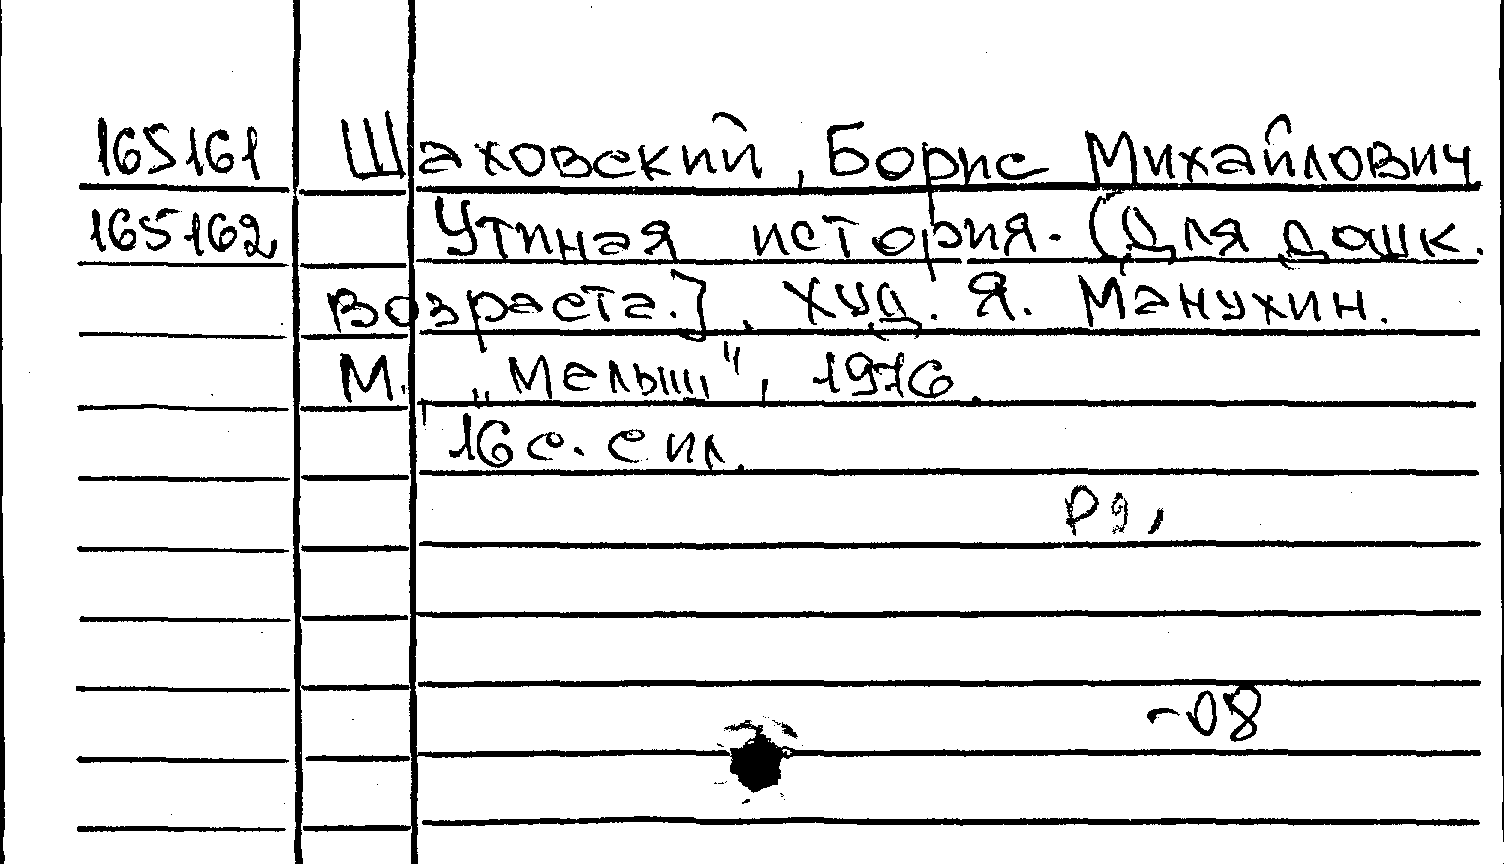 165161 Шаховский, Борис Михайлович
165162 Утиная история. (Для дошк.
возраста.], Худ. Я. Манухин.
М., „Малыш", 1976.
16 с. с ил.
Р2,
-08